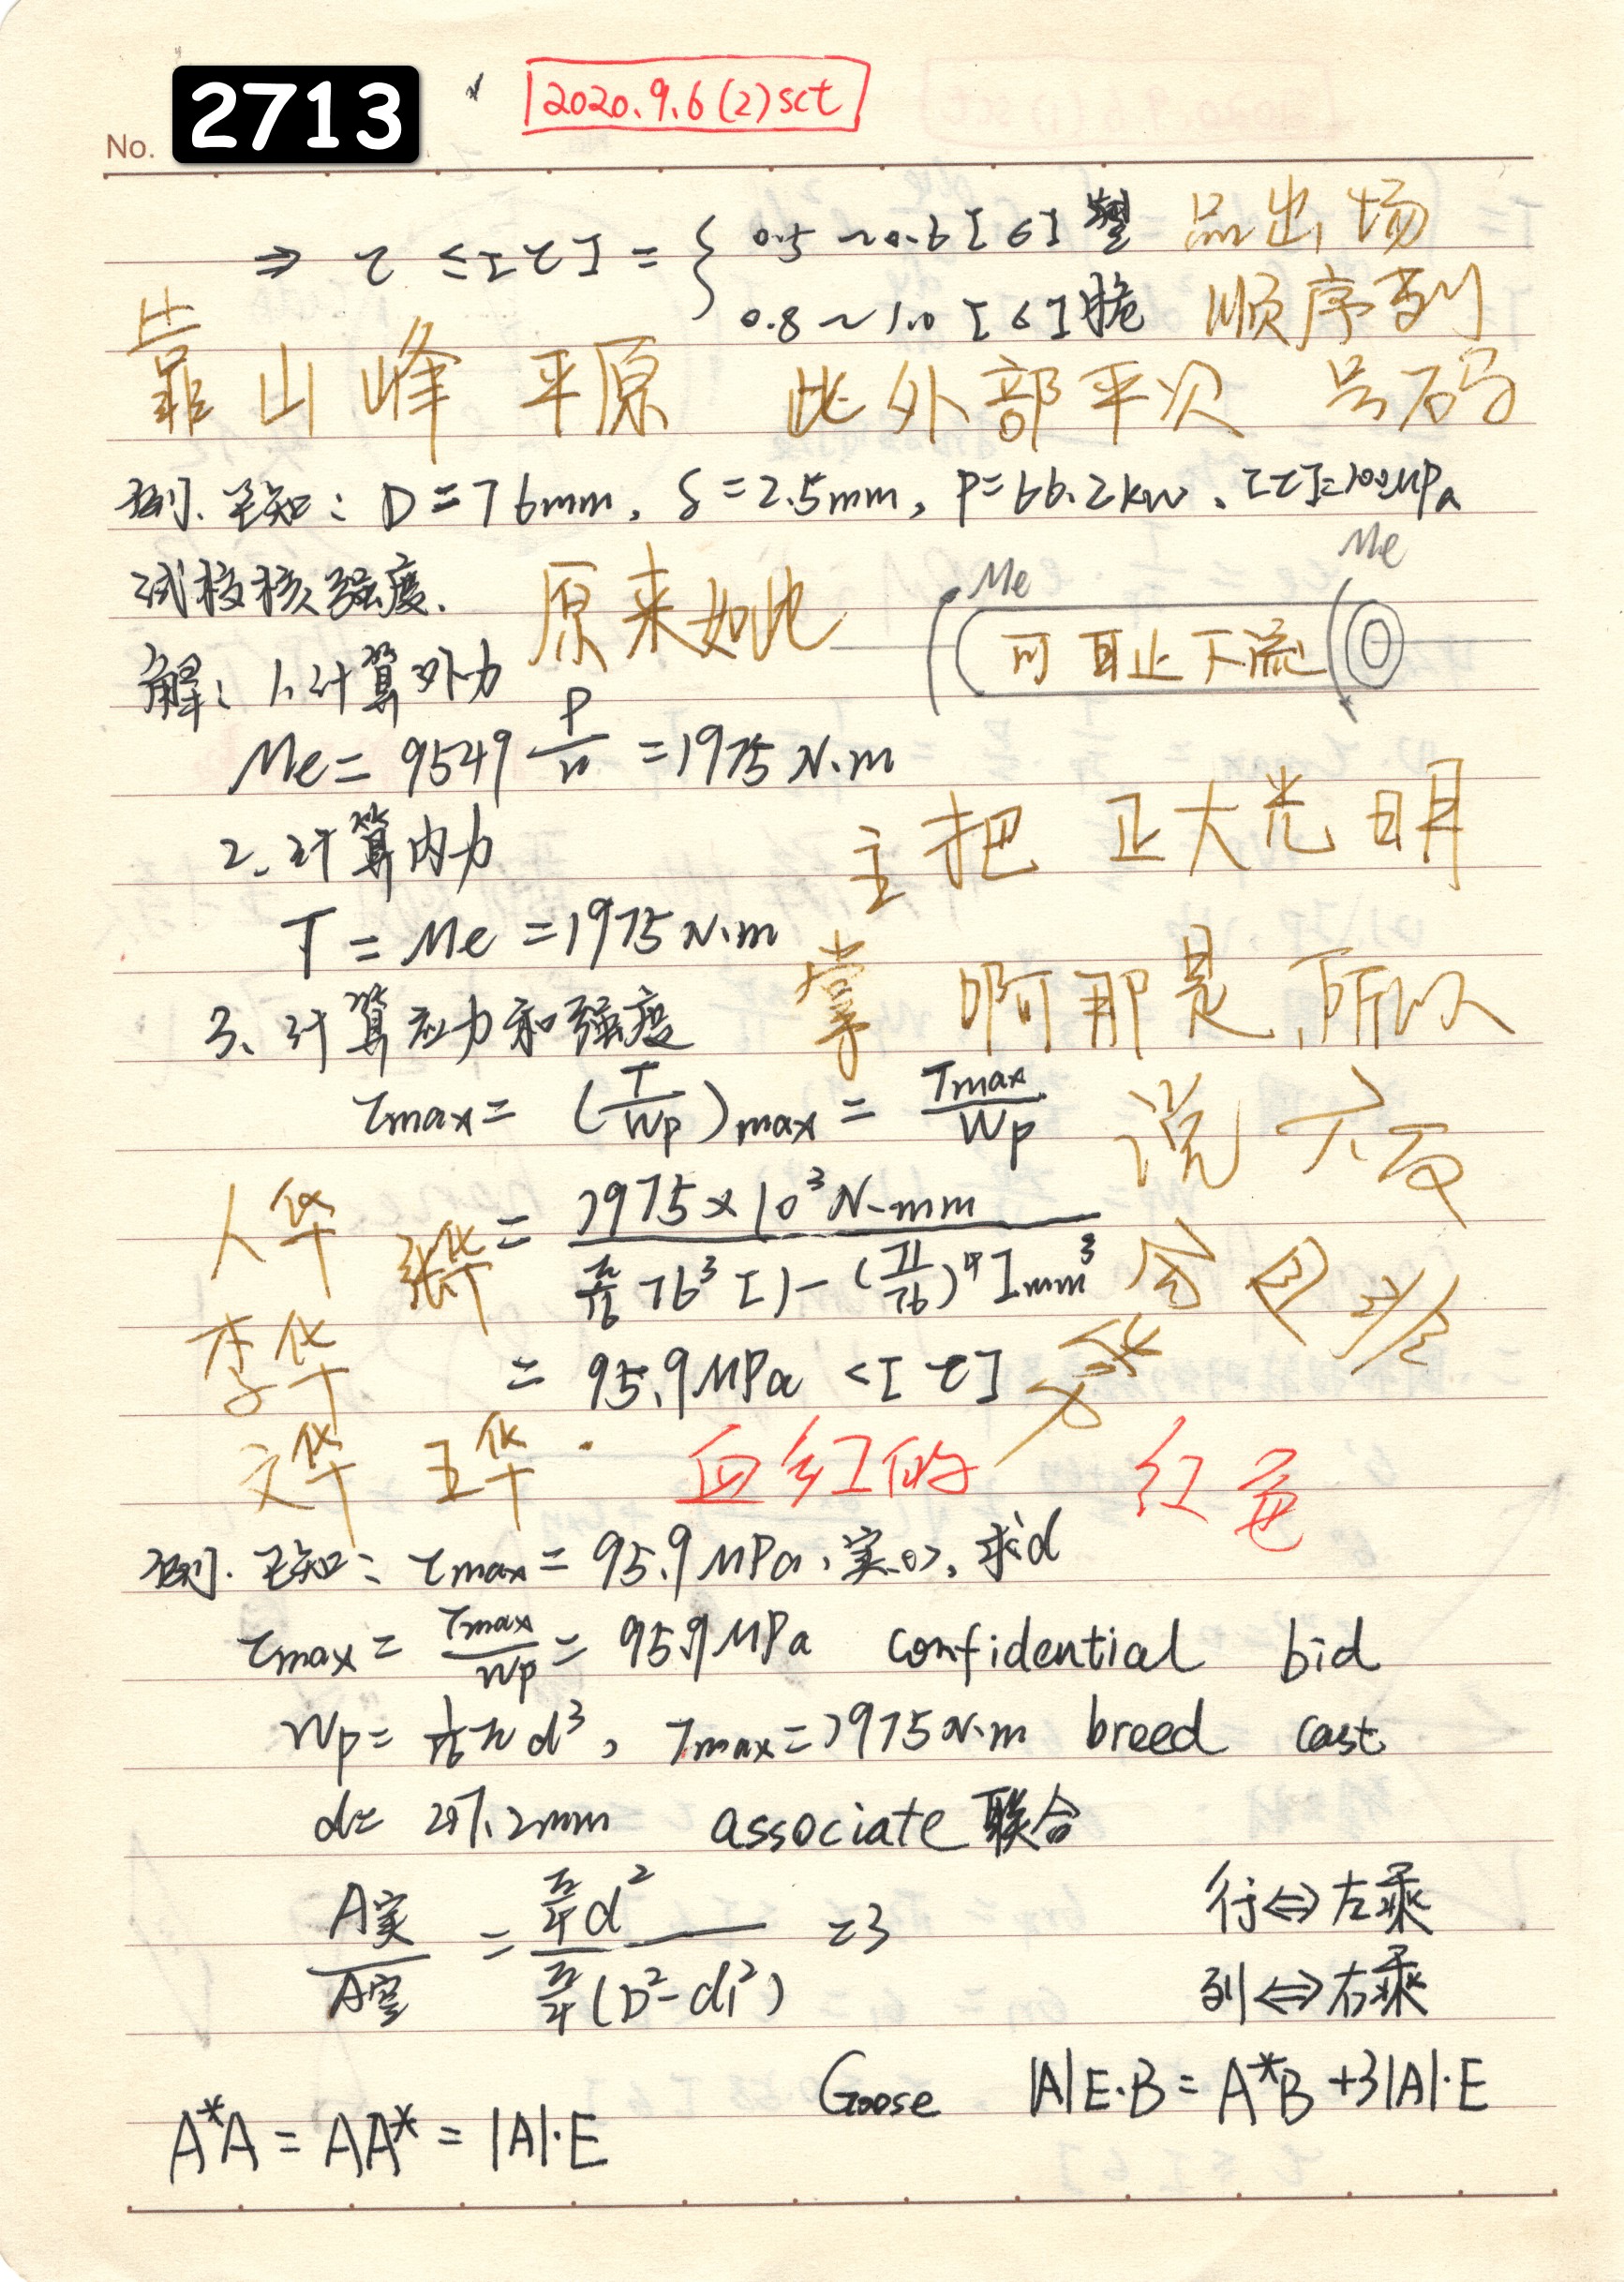 2713
2020.9.6(2)sct
No.
⇒ τ ≤[τ] = { 0.5~0.6[σ] 塑 品出场
0.8~1.0[σ]脆 顺序列
靠山峰 平原 此外部平次 号码
例. 已知: D=76mm, δ=2.5mm, P=66.2kw, [τ]=100MPa
试校核强度. 原来如此
Me Me
可耳止下流
解: 1.计算外力
Me= 9549 P/n =1975 N·m
2.计算内力
主把 正大光明
T = Me =1975N·m
掌 啊那是,所以
3、计算应力和强度
τmax= (T/Wp)max = Tmax/Wp
说
人华 张华 = 1975×10³N·mm / π/16 76³[1-(71/76)⁴]mm³
李华
= 95.9MPa <[τ]
文华 王华
血红的 红色
例. 已知: τmax= 95.9MPa, 实心, 求d
τmax = Tmax/Wp = 95.9MPa confidential bid
Wp= 1/16 π d³, Tmax=1975N·m breed cast
d= 47.2mm associate 联合
A实/A空 = π/4 d² / π/4 (D²-d₁²) =3
行⇔左乘
列⇔右乘
Goose |A|E·B = A*B +3|A|·E
A*A = AA* = |A|·E